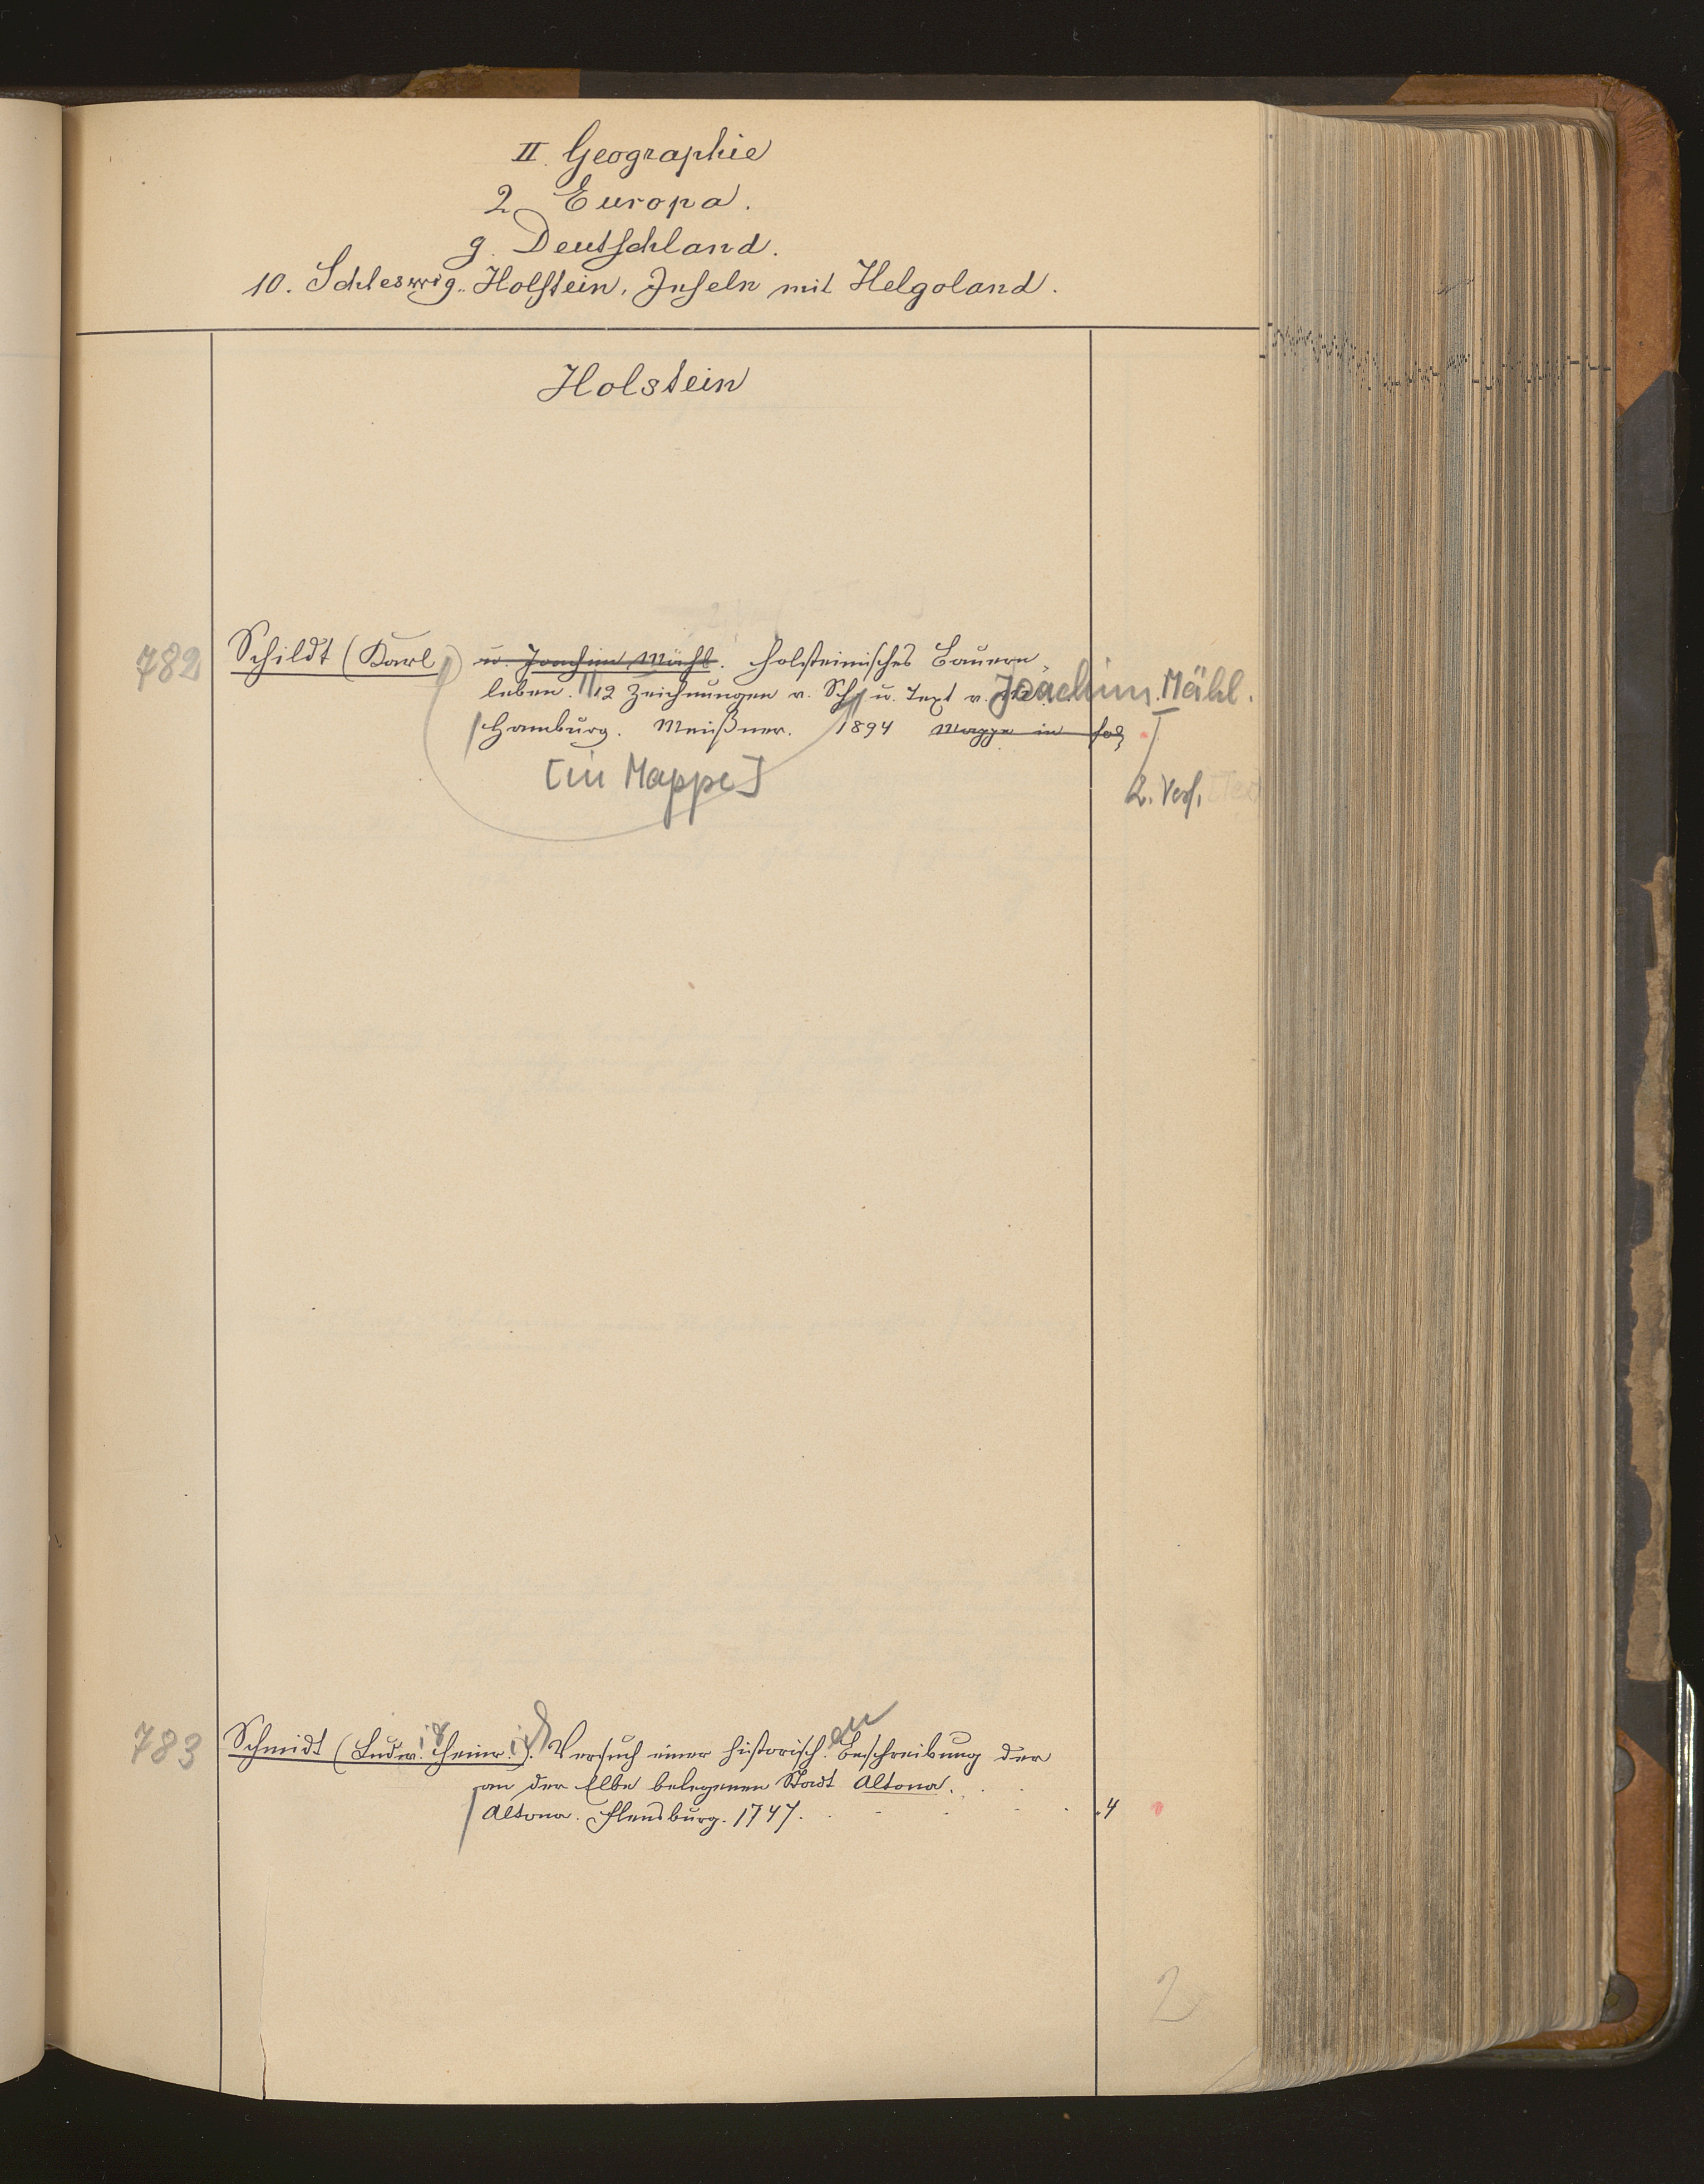 II. Geographie
2 Europa.
g. Deutschland.
10. Schleswig-Holstein, Inseln mit Helgoland.
Holstein
782 Schildt (Karl) u. Joachim Mähl. Holsteinisches Bauern-
leben. 12 Zeichnungen v. Sch. u. Text v. Joachim Mähl.
Hamburg. Meißner. 1894 Mappe in fol
[in Mappe]
2. Verf.
783 Schmidt (Ludwig Heinrich). Versuch einer historischen Beschreibung der
an der Elbe belegenen Stadt Altona.
Altona. Flensburg. 1747. 4
2